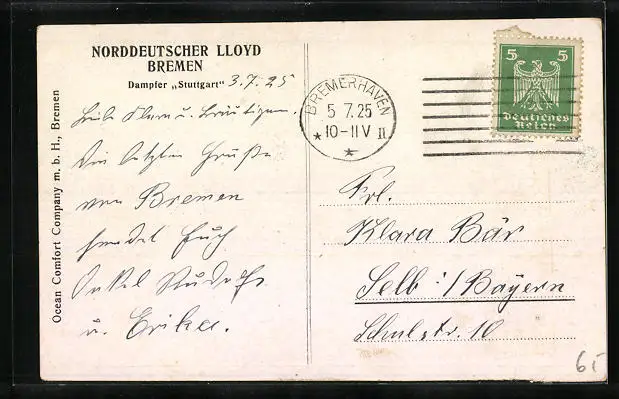 NORDDEUTSCHER LLOYD
BREMEN
Dampfer „Stuttgart" 3.7.25
Liebe Klara u. Bräutigam.
Die letzten Grüße
von Bremen
sendet Euch
Onkel Rudolf
u. Erika.
Ocean Comfort Company m. b. H., Bremen
BREMERHAVEN
5 7.25
* 10-11 V II
*
5 5
Deutsches
Reich
Frl.
Klara Bär
Selb i/Bayern
Schulstr. 10
65